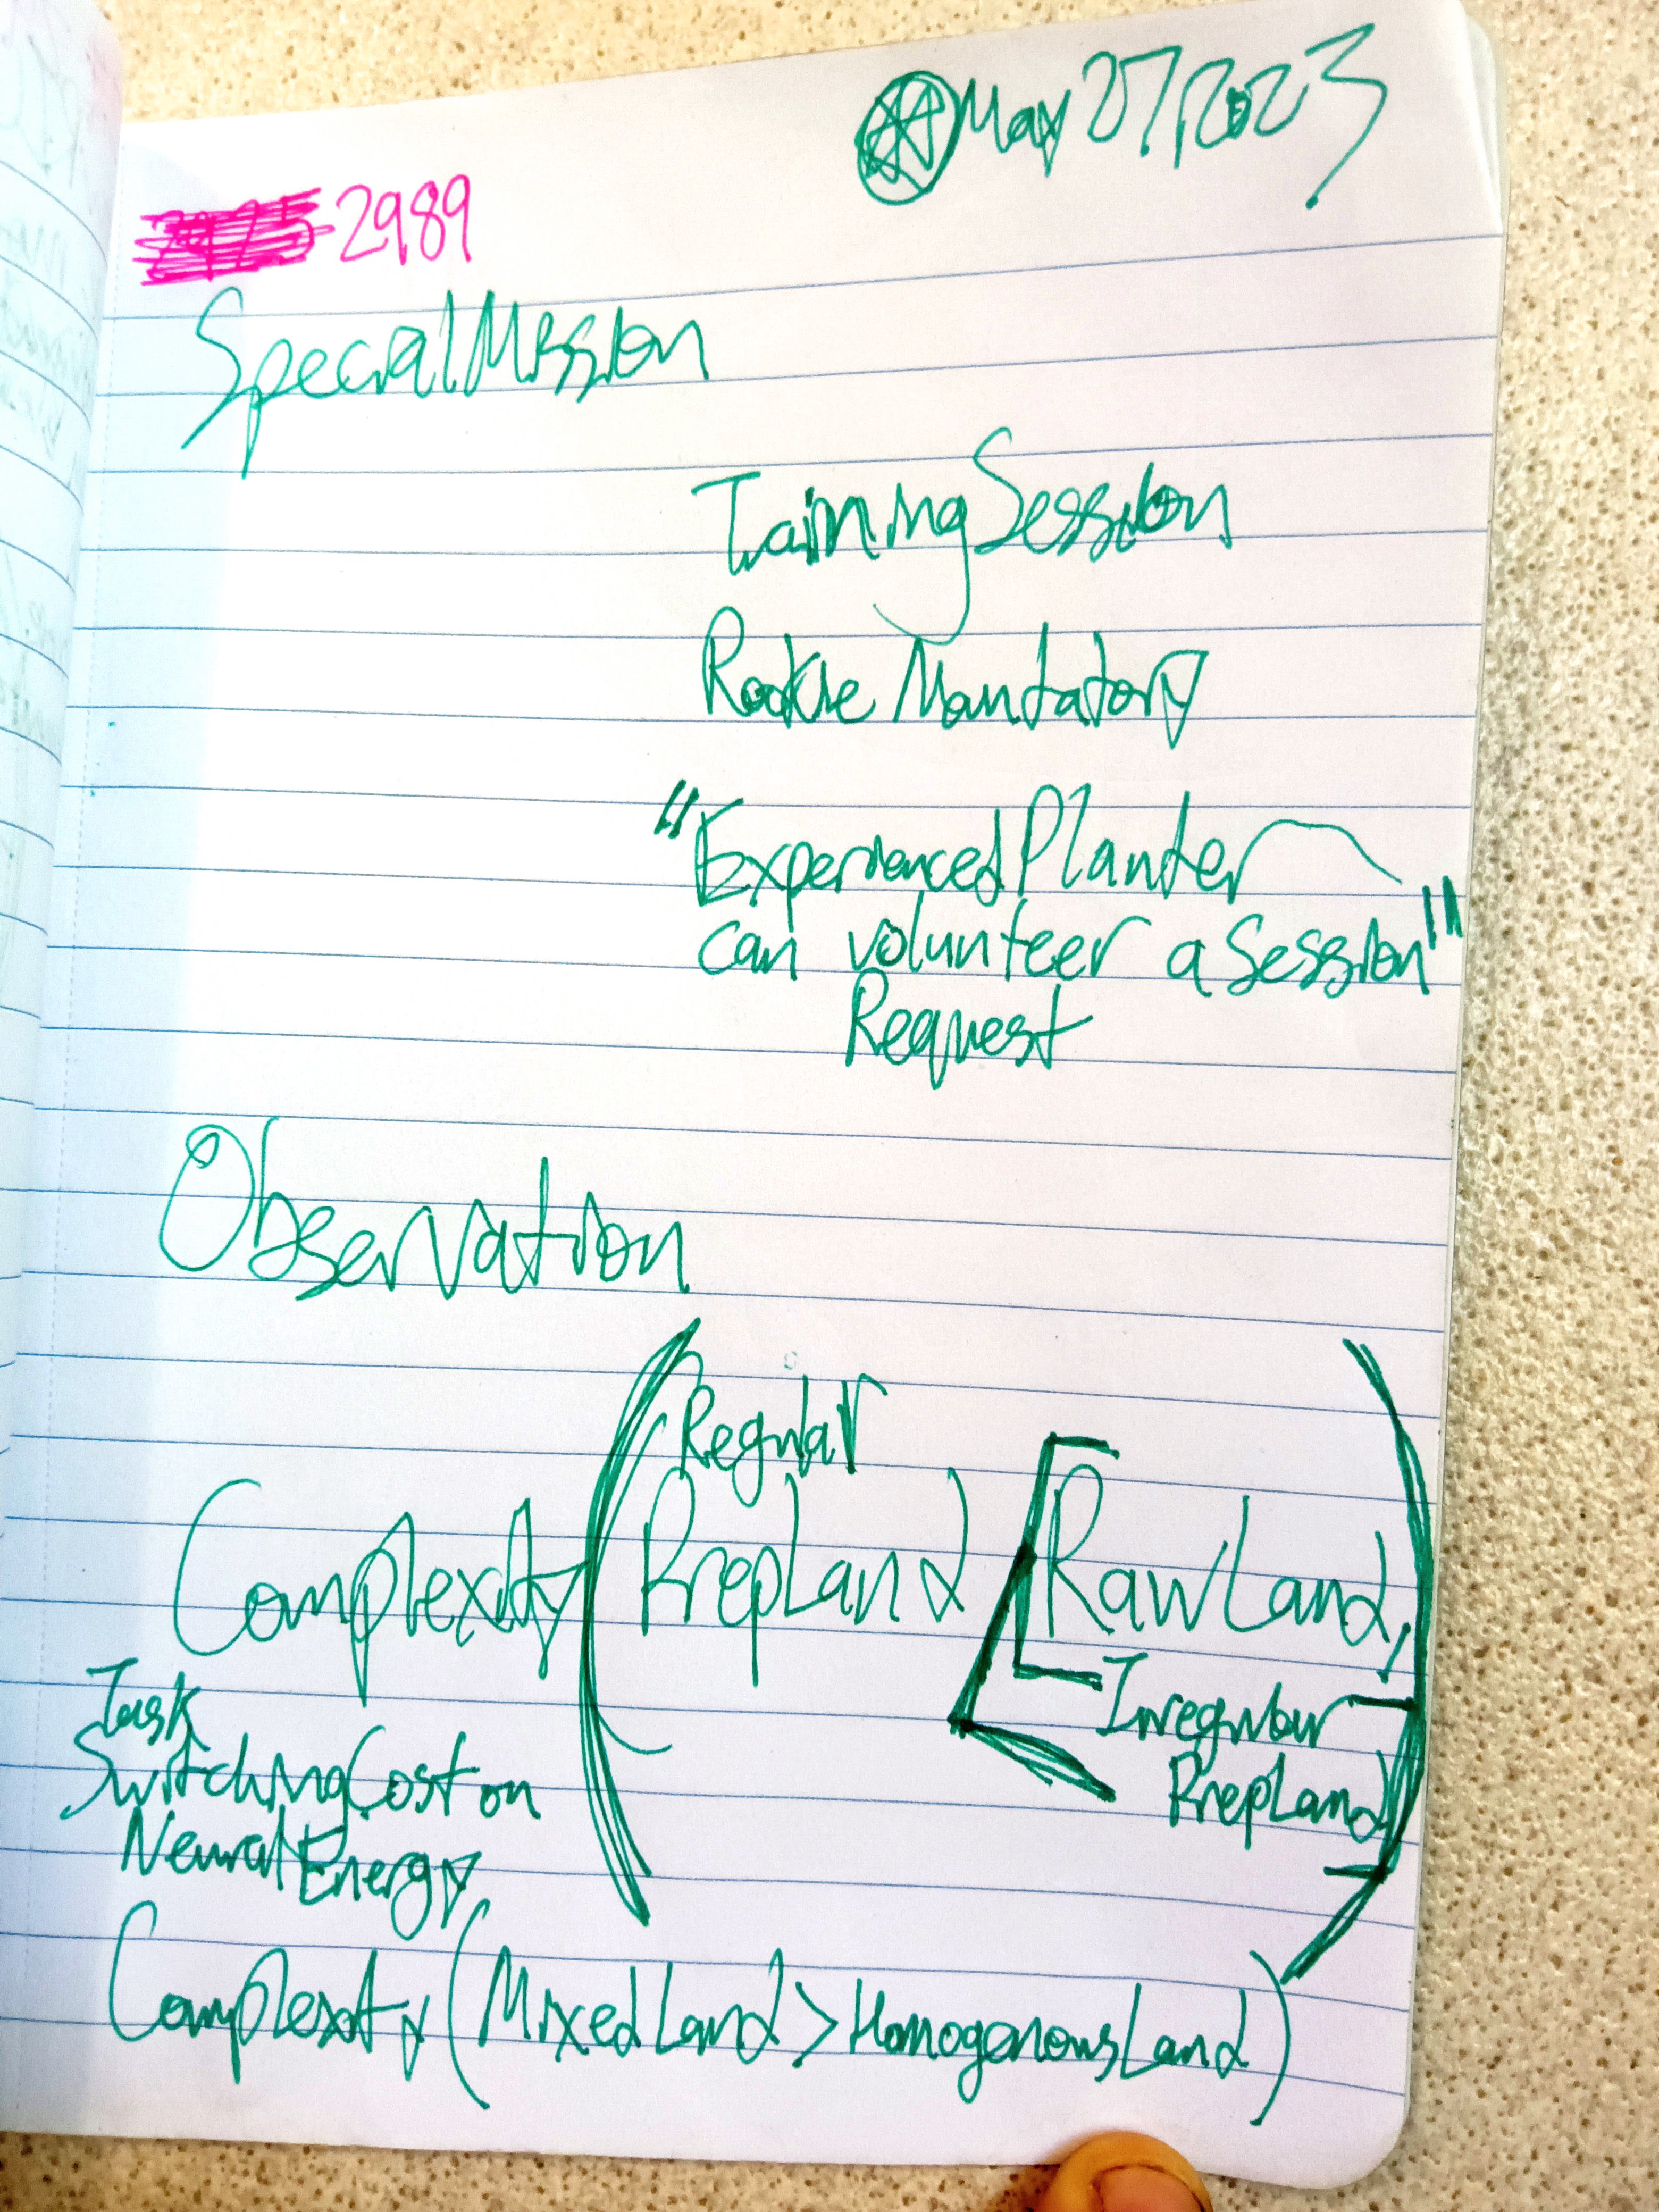 May 27, 2023
-2989
Special Mission
Training Session
Rookie Mandatory
"Experienced Planter
can volunteer a Session"
Request
Observation
Regular
Complexity ( PrepLand < [ RawLand,
Irregular
PrepLand ] )
Task
Switching Cost on
Neural Energy
Complexity (MixedLand > HomogenousLand)